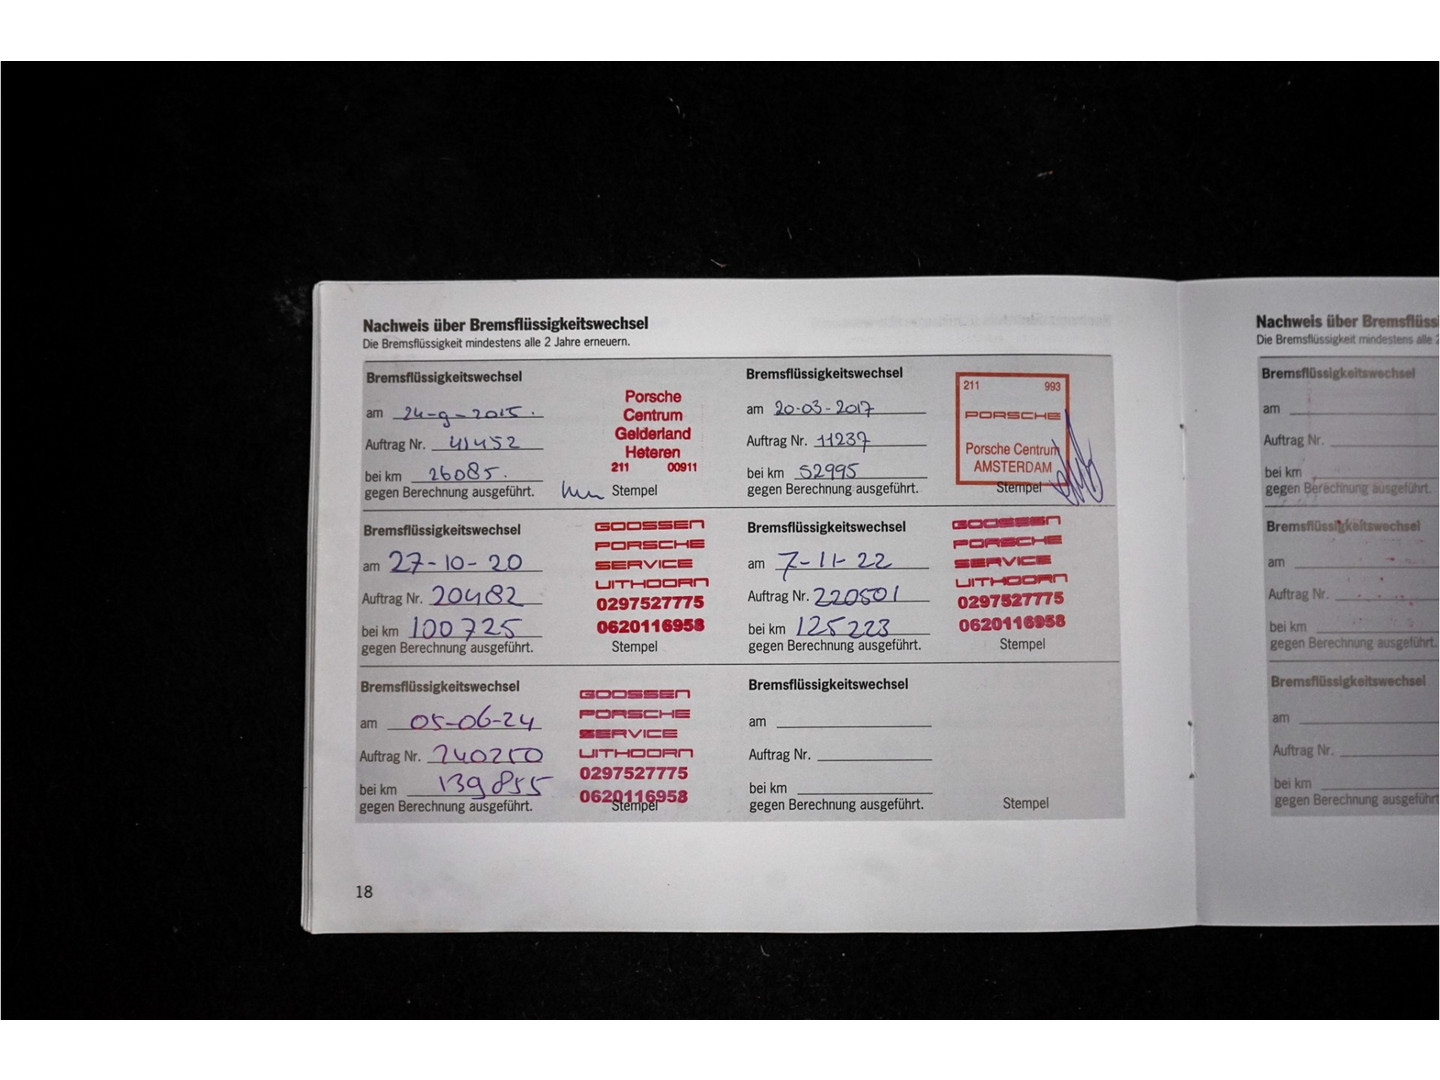 Nachweis über Bremsflüssigkeitswechsel
Die Bremsflüssigkeit mindestens alle 2 Jahre erneuern.
Bremsflüssigkeitswechsel
am 24-9-2015.
Auftrag Nr. 41452
bei km 26085.
gegen Berechnung ausgeführt.
Porsche
Centrum
Gelderland
Heteren
211 00911
Stempel
Bremsflüssigkeitswechsel
am 20-03-2017
Auftrag Nr. 11237
bei km 52995
gegen Berechnung ausgeführt.
211 993
PORSCHE
Porsche Centrum
AMSTERDAM
Stempel
Bremsflüssigkeitswechsel
am 27-10-20
Auftrag Nr. 20482
bei km 100725
gegen Berechnung ausgeführt.
GOOSSEN
PORSCHE
SERVICE
UITHOORN
0297527775
0620116958
Stempel
Bremsflüssigkeitswechsel
am 7-11-22
Auftrag Nr. 220501
bei km 125223
gegen Berechnung ausgeführt.
GOOSSEN
PORSCHE
SERVICE
UITHOORN
0297527775
0620116958
Stempel
Bremsflüssigkeitswechsel
am 05-06-24
Auftrag Nr. 240250
bei km 139855
gegen Berechnung ausgeführt.
GOOSSEN
PORSCHE
SERVICE
UITHOORN
0297527775
0620116958
Stempel
Bremsflüssigkeitswechsel
am
Auftrag Nr.
bei km
gegen Berechnung ausgeführt.
Stempel
18
Nachweis über Bremsflüssi
Die Bremsflüssigkeit mindestens alle
Bremsflüssigkeitswechsel
am
Auftrag Nr.
bei km
gegen Berechnung ausgeführt.
Bremsflüssigkeitswechsel
am
Auftrag Nr.
bei km
gegen Berechnung ausgeführt.
Bremsflüssigkeitswechsel
am
Auftrag Nr.
bei km
gegen Berechnung ausgeführt